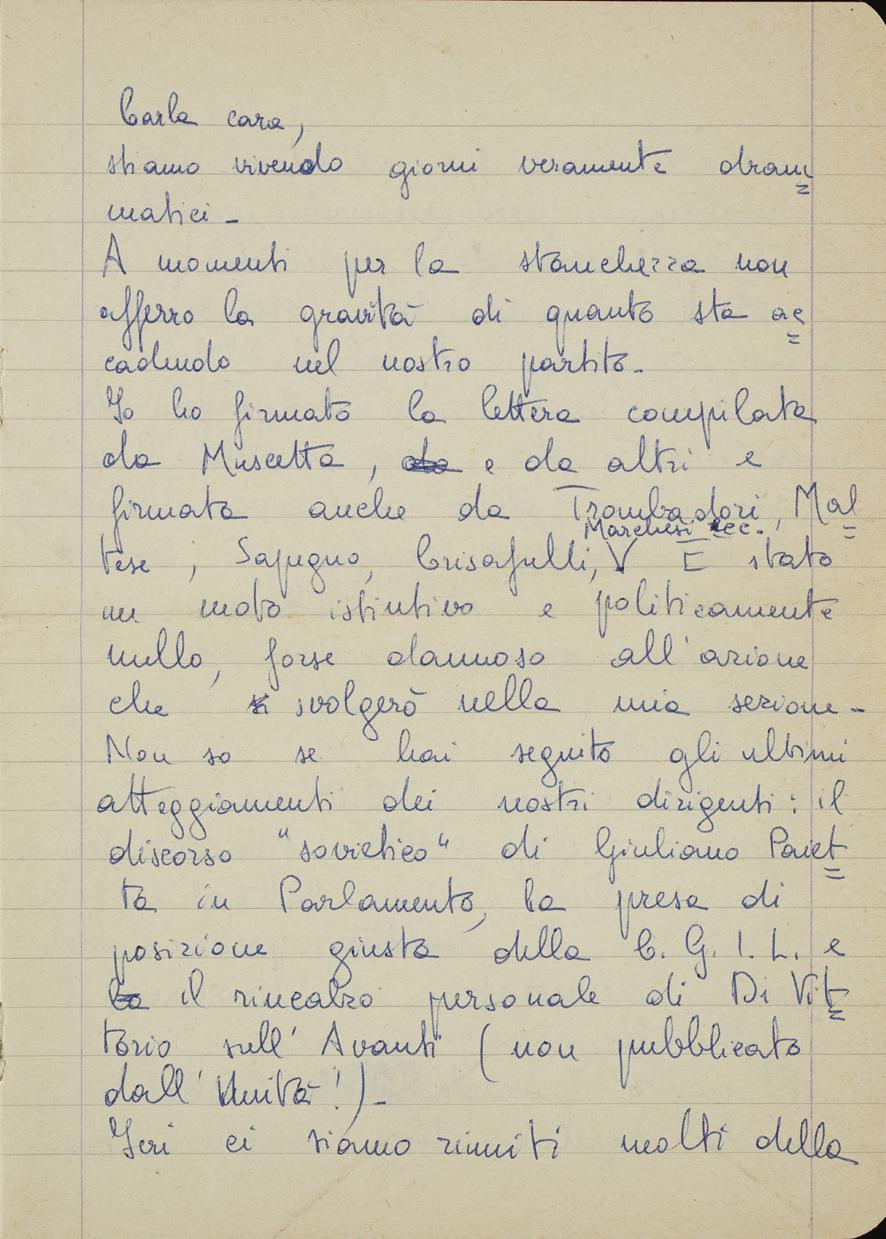 Carla cara,
stiamo vivendo giorni veramente dram=
matici -
A momenti per la stanchezza non
afferro la gravità di quanto sta ac=
cadendo nel nostro partito -
Io ho firmato la lettera compilata
da Muscetta, da e da altri e
firmata anche da Trombadori, Mal=
Marchesi ecc.
tese, Sapegno, Crisafulli, V È stato
un moto istintivo e politicamente
nullo, forse dannoso all'azione
che svolgerò nella mia sezione -
Non so se hai seguito gli ultimi
atteggiamenti dei nostri dirigenti: il
discorso "sovietico" di Giuliano Paiet=
ta in Parlamento, la presa di
posizione giusta della C.G.I.L. e
la il rincalzo personale di Di Vit=
torio sull'Avanti (non pubblicato
dall'Unità!) -
Ieri ci siamo riuniti molti della